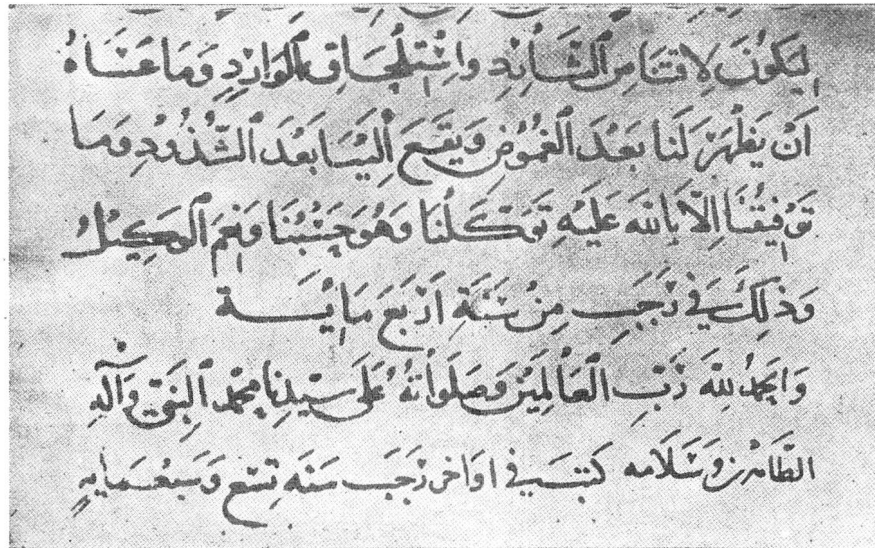 لِيَكُونَ لِاقتنَاصِ الشَّارِدِ وَاسْتِلْحَاقِ الْوَارِدِ وَمَا عَسَاهُ
اَنْ يَظْهَرَ لَنَا بَعْدَ الْغُمُوْضِ وَيَقَعَ اِلَيْنَا بَعْدَ الشُّذُوْذِ وَمَا
تَوْفِيقُنَا اِلَّا بِاللهِ عَلَيْهِ تَوَكَّلْنَا وَهُوَ حَسْبُنَا وَنِعْمَ الْوَكِيْلُ
وَذَلِكَ فِي رَجَبٍ مِنْ سَنَةِ اَرْبَعَ مِايَةٍ
وَالْحَمْدُ لِلَّهِ رَبِّ الْعَالَمِيْنَ وَصَلَوَاتُهُ عَلَى سَيِّدِنَا مُحَمَّدٍ النَّبِيِّ وَآلِهِ
الطَّاهِرِينَ وَسَلَامُه كتبَ في اواخر رَجَبَ سَنَةَ تِسْعٍ وَسَبْعمايهٍ